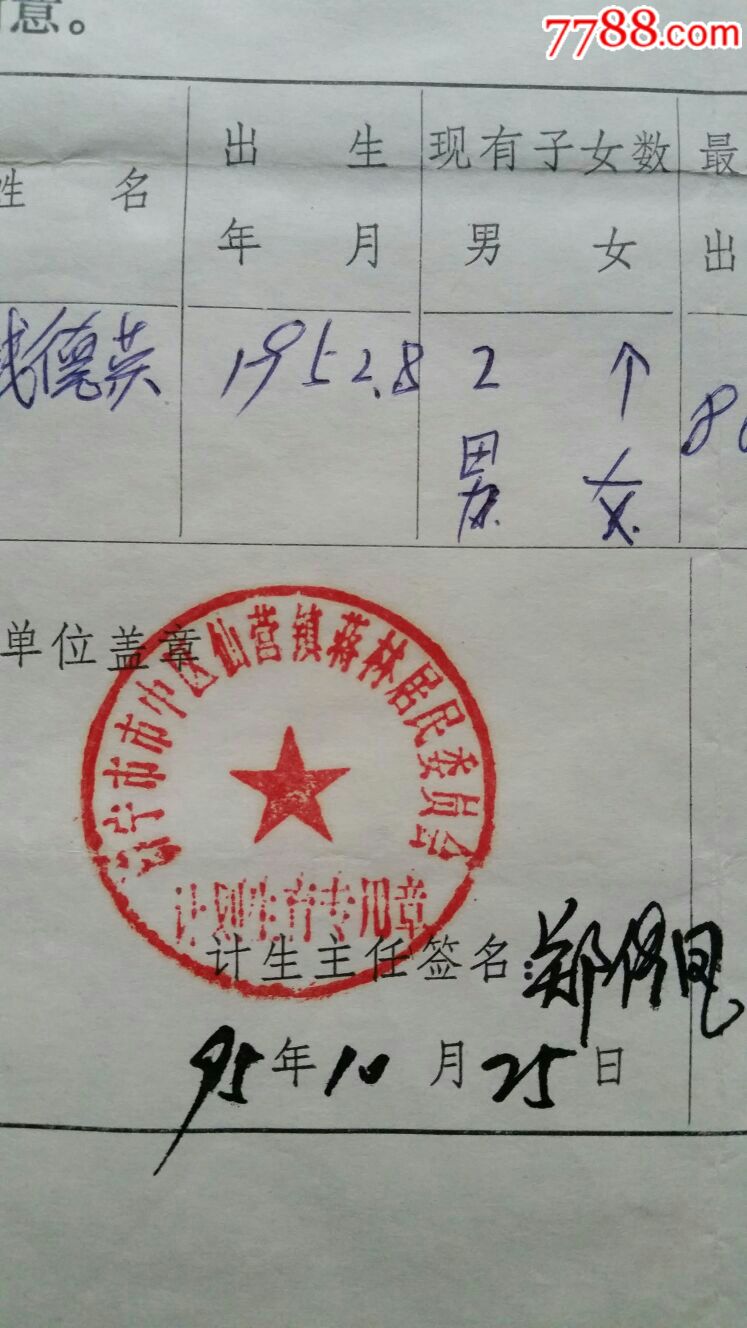 意。
7788.com
出 生 现有子女数 最
姓 名
年 月 男 女 出
德英 1952.8 2 个
8
男 女
单位盖章
济宁市市中区仙营镇蒋林居民委员会
计划生育专用章
计生主任签名:郑修凤
95年10月25日